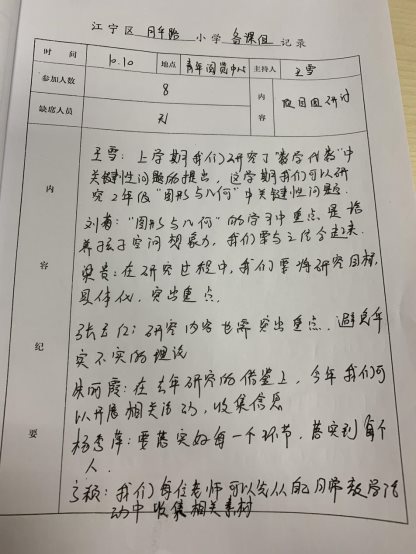 江宁区 月华路 小学 备课组 记录
时 间 10.10 地点 青年阅览中心 主持人 王雪
参加人数 8 内容 校园园研讨
缺席人员 无
内容纪要
王雪：上学期我们研究了"数学代数"中
关键性问题的提出，这学期我们可以研
究2年级"图形与几何"中关键性问题.
刘 ："图形与几何"的学习中重点是培
养孩子空间想象力，我们要与之结合起来.
梁 ：在研究过程中，我们要将研究目标
具体化，突出重点.
张 ：研究内容也需突出重点，避免年
实不实的理论
朱丽霞：在去年研究的借鉴上，今年我们可
以开展相关活动，收集信息
杨秀萍：要落实好每一个环节，落实到每个
人.
颖：我们每位老师可以先从自己日常教学活
动中收集相关素材